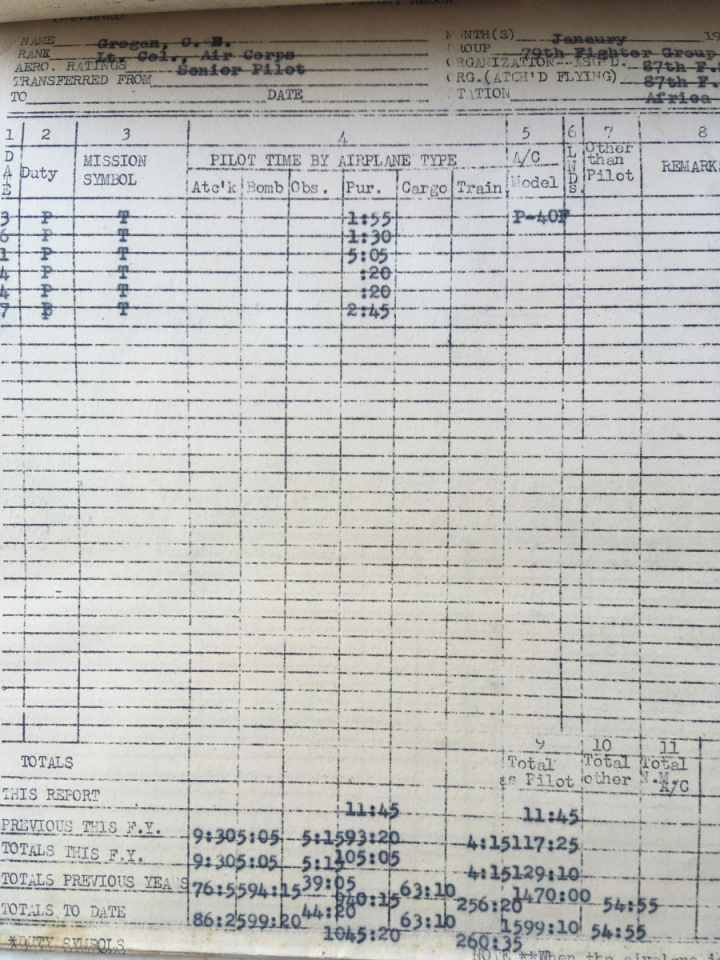 NAME Grogan, C. E. MONTH(S) Janaury 19
RANK Lt. Col., Air Corps GROUP 79th Fighter Group
AERO. RATINGS Senior Pilot ORGANIZATION--AS'G'D. 87th F.S
TRANSFERRED FROM ORG.(ATCH'D FLYING) 87th F.
TO DATE STATION Africa
1 2 3 4 5 6 7 8
DATE Duty MISSION SYMBOL PILOT TIME BY AIRPLANE TYPE A/C Model LNDS. Other than Pilot REMARK
Atc'k Bomb Obs. Pur. Cargo Train
3 P T 1:55 P-40F
6 P T 1:30
1 P T 5:05
4 P T :20
4 P T :20
7 P T 2:45
9 10 11
TOTALS Total as Pilot Total other Total N.M. A/C
THIS REPORT 11:45 11:45
PREVIOUS THIS F.Y. 9:30 5:05 5:15 93:20 4:15 117:25
TOTALS THIS F.Y. 9:30 5:05 5:15 105:05 4:15 129:10
TOTALS PREVIOUS YEARS 76:55 94:15 39:05 940:15 63:10 256:20 1470:00 54:55
TOTALS TO DATE 86:25 99:20 44:20 1045:20 63:10 260:35 1599:10 54:55
*DUTY SYMBOLS NOTE **When the airplane i